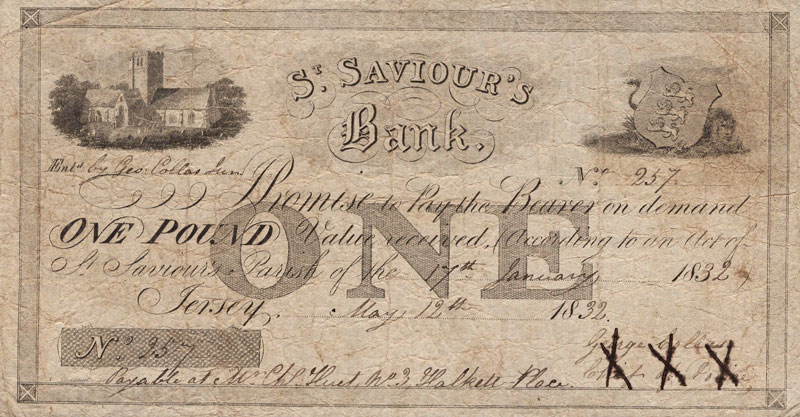 St. SAVIOUR'S
Bank.
Entd. by Geo. Collas Junr
No. 257
I Promise to Pay the Bearer on demand
ONE POUND Value received, (According to an Act of
St. Saviour's Parish of the 17th January 1832)
ONE
Jersey. May 12th 1832.
No. 257
George Collas
Payable at Mr. Chs. Huet, No. 3, Halkett Place.
X X X